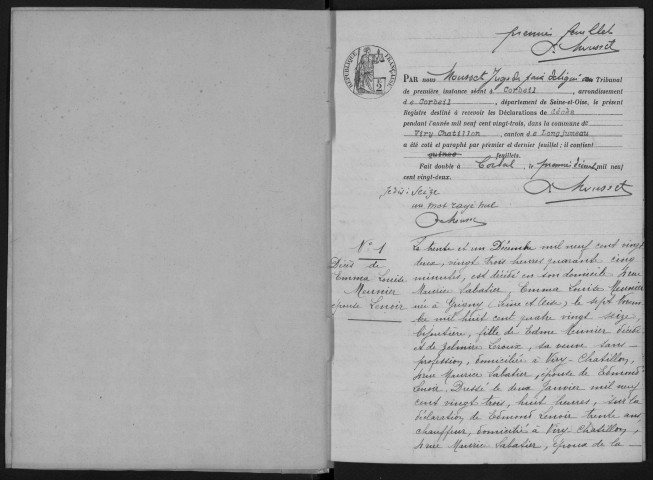 premier feuillet
J. Mousset
RÉPUBLIQUE FRANÇAISE
PAR nous Mousset Juge de paix désigné au Tribunal
de première instance séant à Corbeil, arrondissement
de Corbeil, département de Seine-et-Oise, le présent
Registre destiné à recevoir les Déclarations de décès
pendant l'année mil neuf cent vingt-trois, dans la commune de
Viry Chatillon, canton de Longjumeau
a été coté et paraphé par premier et dernier feuillet; il contient
quinze feuillets.
Fait double à Corbeil, le premier Décembre mil neuf
cent vingt-deux.
J. Mousset
Je dis: Seize
un mot rayé nul
J. Mousset
N° 1
Décès de
Emma Louise
Meunier
épouse Lenoir
Le trente et un Décembre mil neuf cent vingt
deux, vingt trois heures quarante cinq
minutes, est décédée en son domicile rue
Maurice Sabatier, Emma Louise Meunier
née à Grigny (Seine et Oise) le sept Novem
bre mil huit cent quatre vingt seize,
bijoutière, fille de Edme Meunier décédé
et de Zelmire Leroux, sa veuve sans
profession, domiciliée à Viry-Chatillon,
rue Maurice Sabatier, épouse de Edmond
Lenoir. Dressé le deux Janvier mil neuf
cent vingt trois, huit heures, sur la
déclaration de Edmond Lenoir trente ans
chauffeur, domicilié à Viry-Chatillon,
rue Maurice Sabatier, époux de la